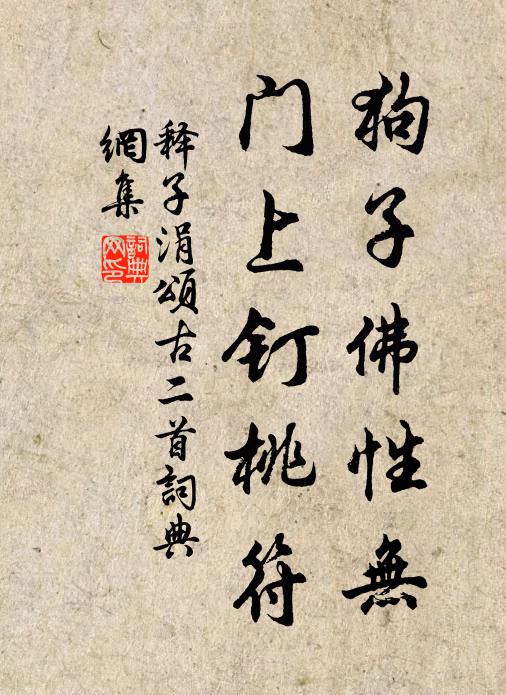 狗子佛性無
门上钉桃符
释子涓頌古二首詞典
網集
詞典
网印